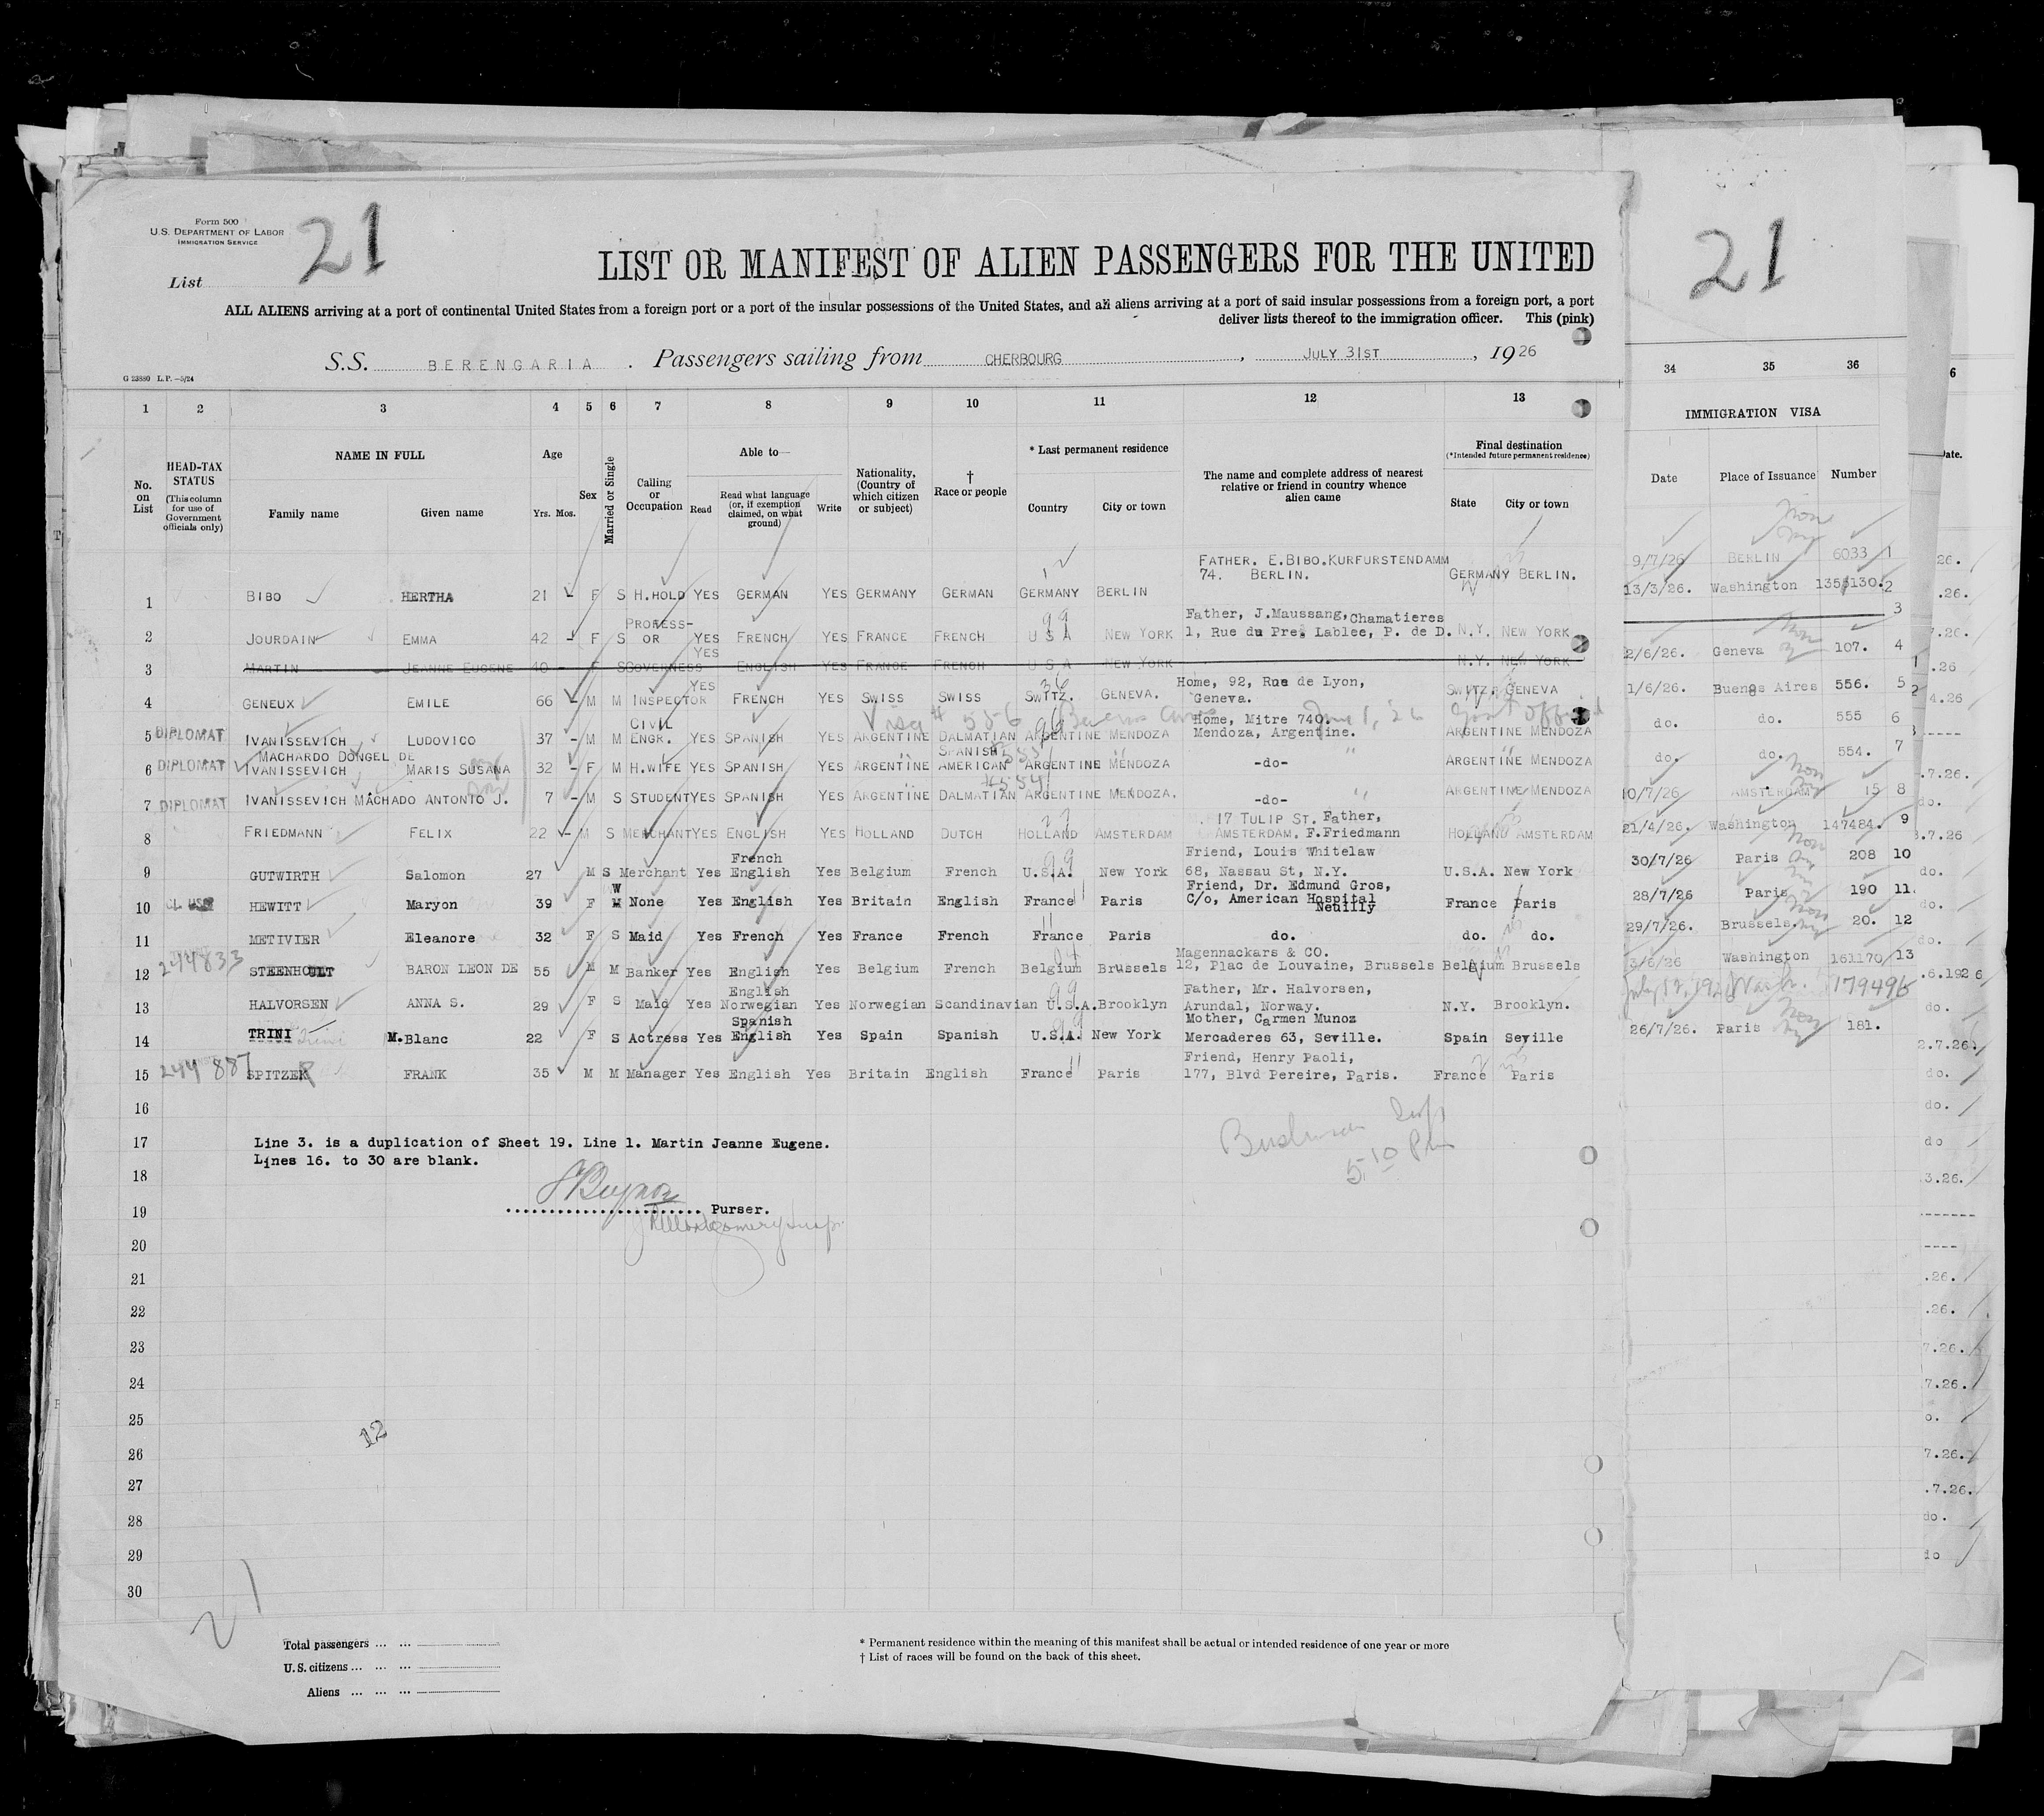 Form 500
U.S. DEPARTMENT OF LABOR
IMMIGRATION SERVICE
21
List
LIST OR MANIFEST OF ALIEN PASSENGERS FOR THE UNITED
ALL ALIENS arriving at a port of continental United States from a foreign port or a port of the insular possessions of the United States, and all aliens arriving at a port of said insular possessions from a foreign port, a port
deliver lists thereof to the immigration officer. This (pink)
S.S. BERENGARIA . Passengers sailing from CHERBOURG , JULY 31ST , 1926
G 23880 L.P.—5/24
1 2 3 4 5 6 7 8 9 10 11 12 13
No. on List
HEAD-TAX STATUS
(This column for use of Government officials only)
NAME IN FULL
Family name Given name
Age
Yrs. Mos.
Sex
Married or Single
Calling or Occupation
Able to—
Read Read what language (or, if exemption claimed, on what ground) Write
Nationality, (Country of which citizen or subject)
† Race or people
* Last permanent residence
Country City or town
The name and complete address of nearest relative or friend in country whence alien came
Final destination
(*Intended future permanent residence)
State City or town
FATHER. E.BIBO.KURFURSTENDAMM
74. BERLIN.
1 BIBO HERTHA 21 - F S H.HOLD YES GERMAN YES GERMANY GERMAN GERMANY BERLIN GERMANY BERLIN.
99
Father, J.Maussang, Chamatieres
2 JOURDAIN EMMA 42 - F S PROFESS-OR YES FRENCH YES FRANCE FRENCH U S A NEW YORK 1, Rue du Pre, Lablee, P. de D. N.Y. NEW YORK
3 MARTIN JEANNE EUGENE 40 - F S GOVERNESS YES ENGLISH YES FRANCE FRENCH U S A NEW YORK N.Y. NEW YORK
36
Home, 92, Rue de Lyon,
4 GENEUX EMILE 66 - M M INSPECTOR YES FRENCH YES SWISS SWISS SWITZ. GENEVA. Geneva. SWITZ. GENEVA
Visa # 556 Buenos Aires June 1, '26 Govt Official
96
Home, Mitre 740.
5 DIPLOMAT IVANISSEVICH LUDOVICO 37 - M M CIVIL ENGR. YES SPANISH YES ARGENTINE DALMATIAN ARGENTINE MENDOZA Mendoza, Argentine. ARGENTINE MENDOZA
MACHARDO DONGEL DE
6 DIPLOMAT IVANISSEVICH MARIS SUSANA 32 - F M H.WIFE YES SPANISH YES ARGENTINE SPANISH AMERICAN ARGENTINE MENDOZA -do- ARGENTINE MENDOZA
#554
7 DIPLOMAT IVANISSEVICH MACHADO ANTONIO J. 7 - M S STUDENT YES SPANISH YES ARGENTINE DALMATIAN ARGENTINE MENDOZA. -do- ARGENTINE MENDOZA
17 TULIP ST. Father,
8 FRIEDMANN FELIX 22 - M S MERCHANT YES ENGLISH YES HOLLAND DUTCH HOLLAND AMSTERDAM AMSTERDAM. F.Friedmann HOLLAND AMSTERDAM
French 99 Friend, Louis Whitelaw
9 GUTWIRTH Salomon 27 M S Merchant Yes English Yes Belgium French U.S.A. New York 68, Nassau St, N.Y. U.S.A. New York
W Friend, Dr. Edmund Gros,
10 HEWITT Maryon 39 F M None Yes English Yes Britain English France 11 Paris C/o, American Hospital France Paris
Neuilly
11
11 METIVIER Eleanore 32 F S Maid Yes French Yes France French France Paris do. do. do.
244833
Magennackars & CO.
12 STEENHOULT BARON LEON DE 55 M M Banker Yes English Yes Belgium French Belgium Brussels 12, Plac de Louvaine, Brussels Belgium Brussels
English 99 Father, Mr. Halvorsen,
13 HALVORSEN ANNA S. 29 F S Maid Yes Norwegian Yes Norwegian Scandinavian U.S.A. Brooklyn Arundal, Norway. N.Y. Brooklyn.
Spanish 99 Mother, Carmen Munoz
14 TRINI Trini M.Blanc 22 F S Actress Yes English Yes Spain Spanish U.S.A. New York Mercaderes 63, Seville. Spain Seville
Friend, Henry Paoli,
15 244887 SPITZER FRANK 35 M M Manager Yes English Yes Britain English France 11 Paris 177, Blvd Pereire, Paris. France Paris
16
17 Line 3. is a duplication of Sheet 19. Line 1. Martin Jeanne Eugene.
Lines 16. to 30 are blank.
5 10 Pm
18
19 Purser.
20
21
22
23
24
25
12
26
27
28
29
30
21
Total passengers
U.S. citizens
Aliens
* Permanent residence within the meaning of this manifest shall be actual or intended residence of one year or more
† List of races will be found on the back of this sheet.
21
34 35 36
IMMIGRATION VISA
Date Place of Issuance Number
9/7/26 BERLIN 6033 1
13/3/26. Washington 2
3
2/6/26. Geneva 107. 4
1/6/26. Buenos Aires 556. 5
do. do. 555 6
do. do. 554. 7
10/7/26 AMSTERDAM 15 8
21/4/26. Washington 147484. 9
30/7/26 Paris 208 10
28/7/26 Paris 190 11.
29/7/26. Brussels. 20. 12
3/6/26 Washington 161170 13
July 12, 1926 Wash. 179496
26/7/26. Paris 181.
6
Date.
26.
.26.
7.26.
.26
4.26
-----
.7.26.
do.
3.7.26
do.
do.
do.
.6.1926
do.
2.7.26.
do.
do.
do
3.26.
------
----
.26.
.26.
7.26.
7.26.
o.
7.26.
.7.26.
do.
do